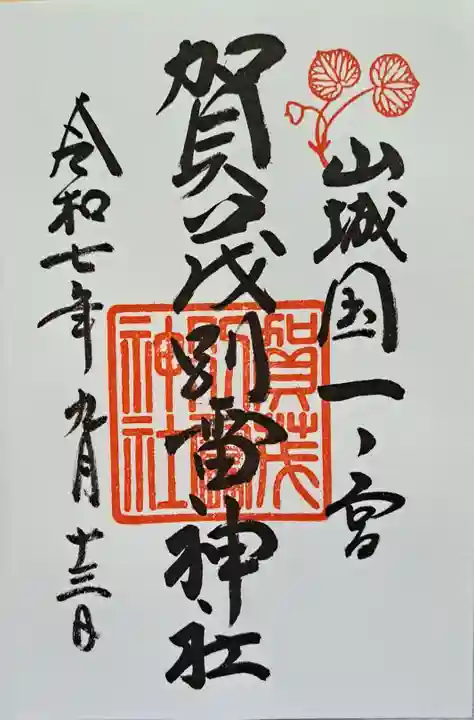 山城国一ノ宮
賀茂別雷神社
賀茂別雷神社
令和七年九月十三日